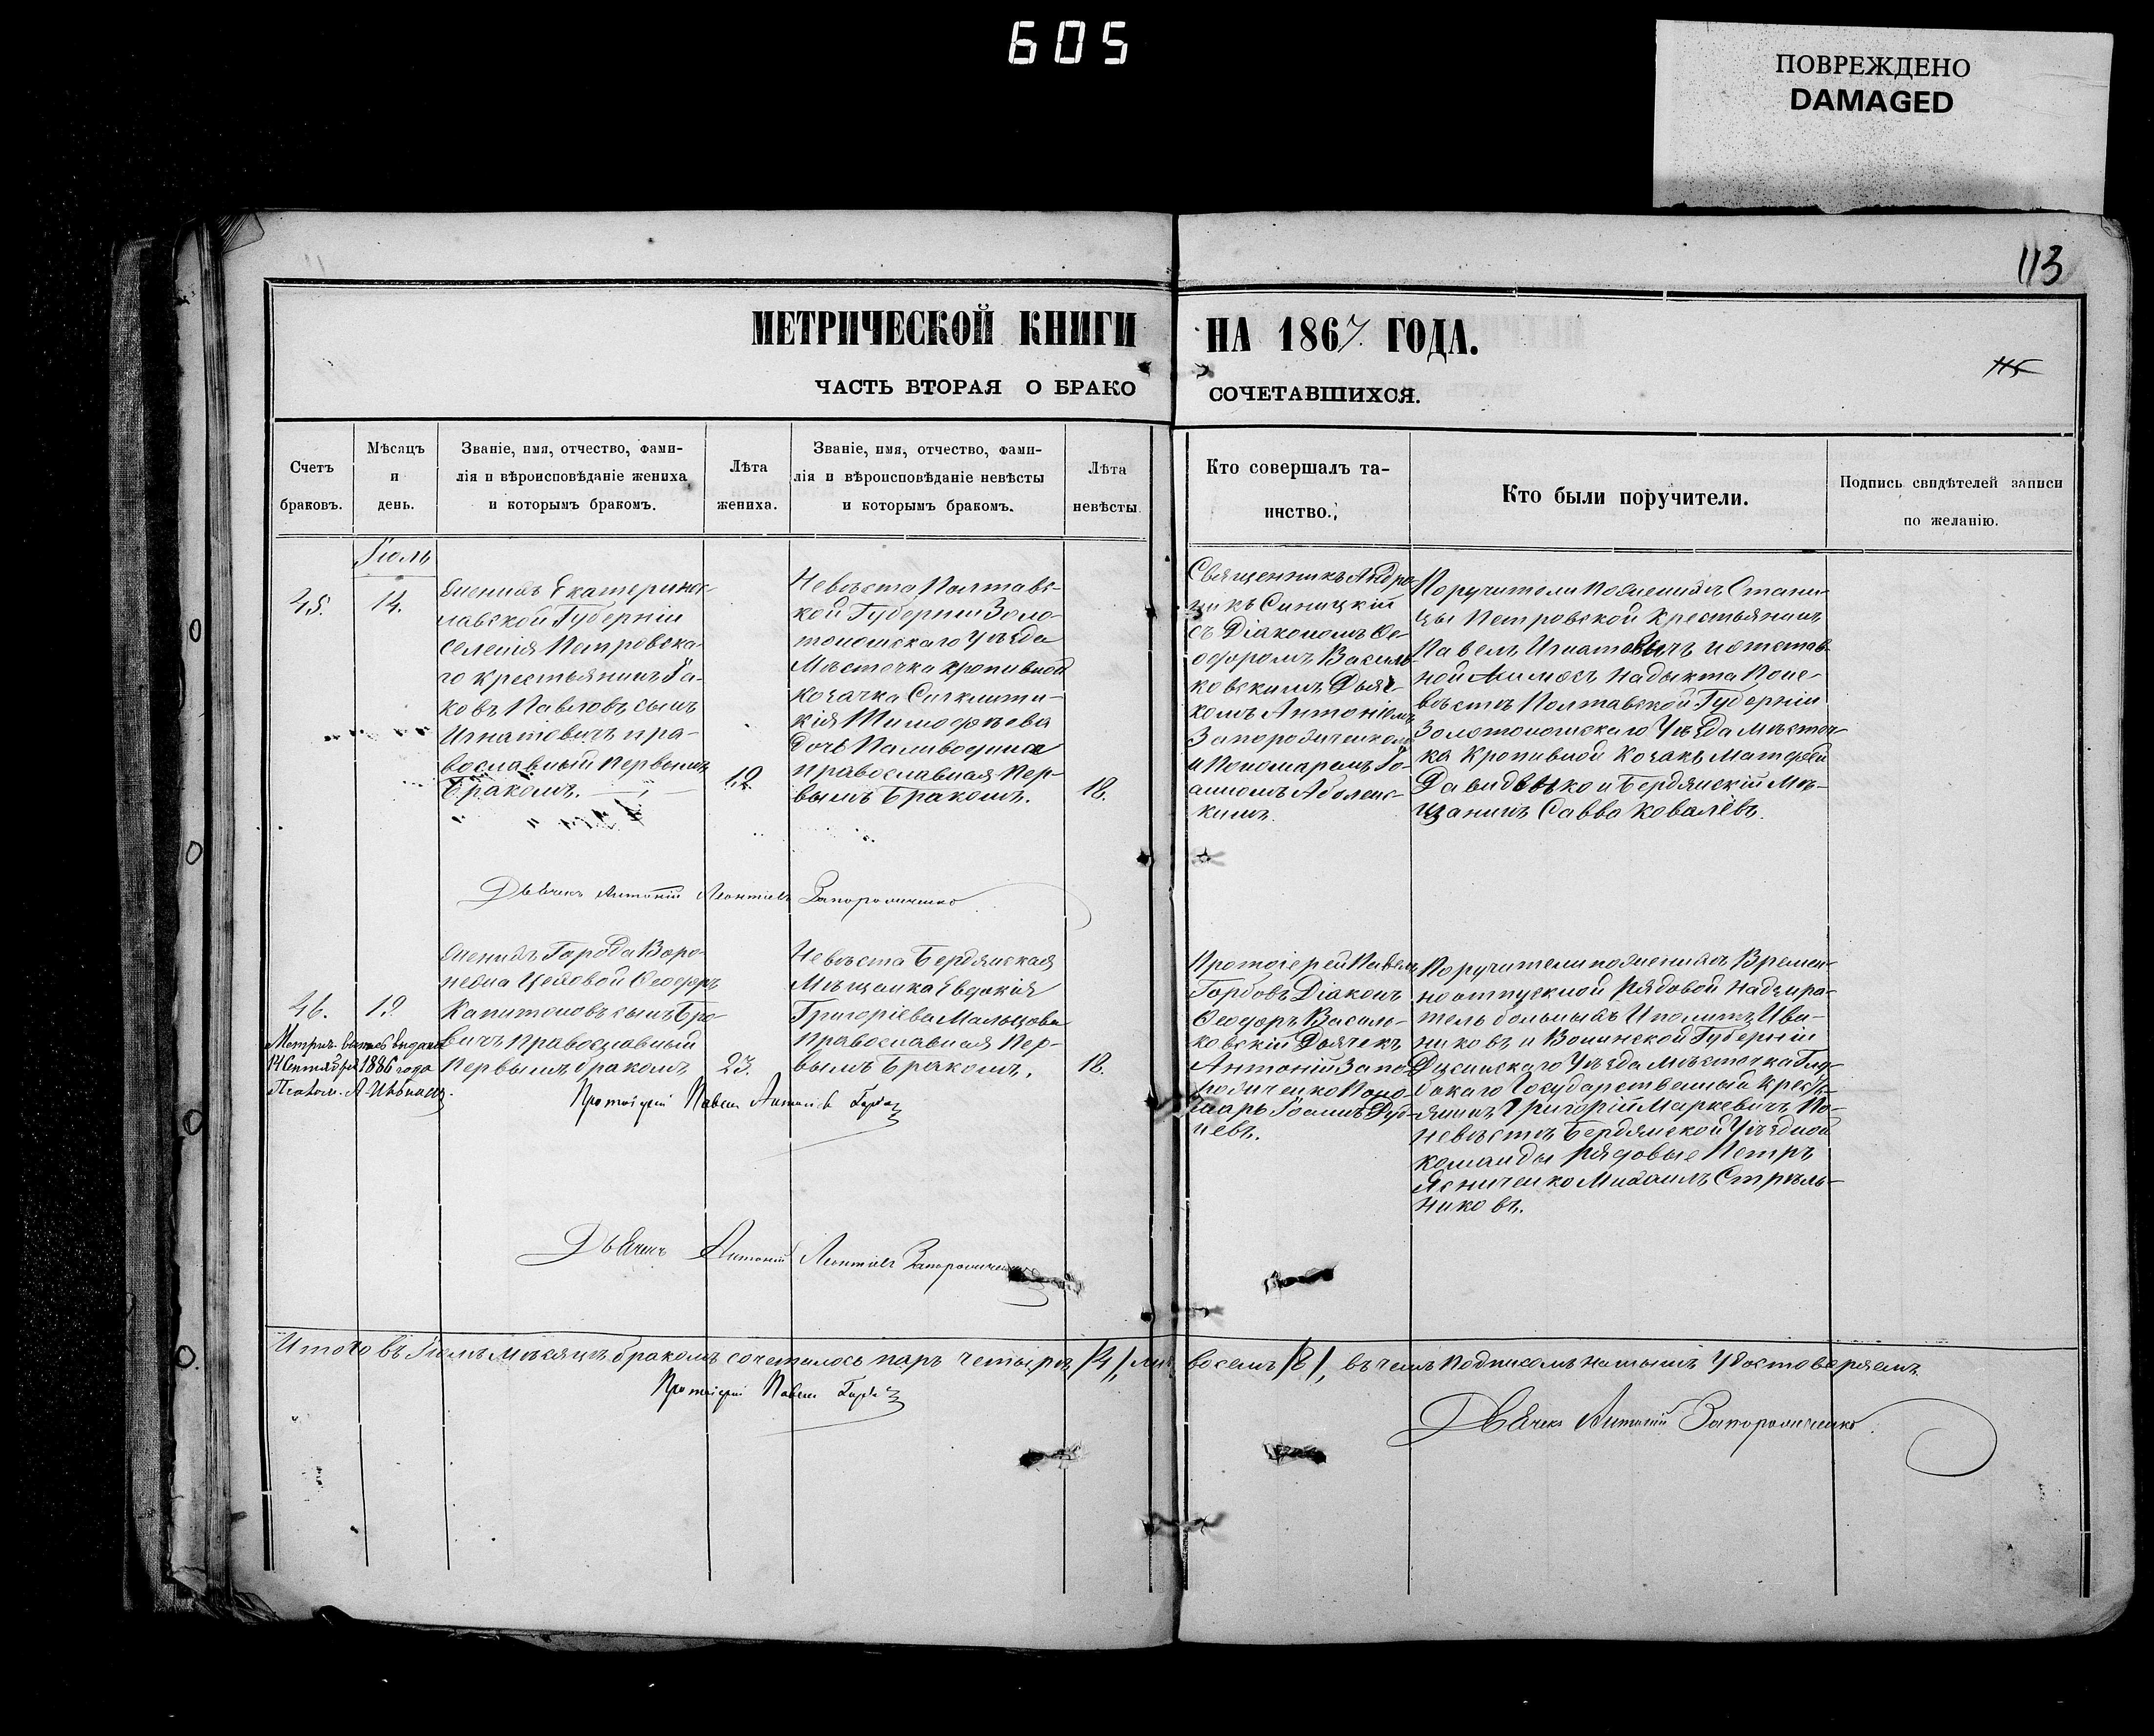 605
ПОВРЕЖДЕНО
DAMAGED
113
МЕТРИЧЕСКОЙ КНИГИ НА 1867 ГОДА.
115
ЧАСТЬ ВТОРАЯ О БРАКОСОЧЕТАВШИХСЯ.
Счетъ
браковъ.
Мѣсяцъ
и
день.
Званіе, имя, отчество, фами-
лія и вѣроисповѣданіе жениха
и которымъ бракомъ.
Лѣта
жениха.
Званіе, имя, отчество, фами-
лія и вѣроисповѣданіе невѣсты
и которымъ бракомъ.
Лѣта
невѣсты.
Кто совершалъ та-
инство.
Кто были поручители.
Подпись свидѣтелей записи
по желанію.
Іюль
45.
14.
Женихъ Екатеринос-
лавской Губерніи
селенія Петровска-
го крестьянинъ Іа-
ковъ Павловъ сынъ
Игнатовичъ пра-
вославный первымъ
бракомъ.
19.
Невѣста Полтавс-
кой Губерніи Золо-
тоношскаго Уѣзда
Мѣстечка Кропивной
козачка
Тимофѣева
дочь
православная пер-
вымъ бракомъ.
18.
Священникъ Андро-
никъ Синицкій
съ Діакономъ Ѳе-
одоромъ Василь-
ковскимъ Дьяч-
комъ Антоніемъ
Запорожченкомъ
и Пономаремъ Іо-
анномъ
кимъ.
Поручители По женихѣ Стани-
цы Петровской крестьянинъ
Павелъ Игнатовичъ и отстав-
ной По не-
вѣстѣ Полтавской Губерніи
Золотоношскаго Уѣзда Мѣстеч-
ка Кропивной Козакъ Матфей
Давиденко и Бердянскій Мѣ-
щанинъ Савва Ковалёвъ.
Дьячекъ Антоній Леонтіевъ Запорожченко
46.
19.
Женихъ Города Воро-
нежа Цеховой Ѳеодоръ
Капитоновъ сынъ Бро-
вичъ православный
первымъ бракомъ
23.
Невѣста Бердянская
Мѣщанка Евдокія
Григоріева Мальцова
православная пер-
вымъ бракомъ.
18.
Метрич. выпись выдана
14 Сентября 1886 года
Псалом. А.
Протоіерей Павелъ Гербов
Протоіерей Павелъ
Гербовъ Діаконъ
Ѳеодоръ Василь-
ковскій Дьячекъ
Антоній Запо-
рожченко Поно-
марь Іоаннъ Дуб-
невъ.
Поручители по женихѣ Времен-
но отпускной Рядовой Надзира-
тель больныхъ Иполитъ Ива-
никовъ и Волынской Губерніи
Уѣзда мѣстечка
Государственный крес-
янинъ Григорій Маркевичъ По
невѣстѣ Бердянской Уѣздной
команды Рядовые Петръ
Ясниченко Михаилъ Стрѣль-
никовъ.
Дьячекъ Антоній Леонтіевъ Запорожченко
Итого въ Іюлѣ мѣсяцѣ бракомъ сочеталось паръ четыре /4/, лиц восемь /8/, въ чемъ подписомъ нашимъ Удостоверяемъ
Протоіерей Павелъ Гербов
Дьячекъ Антоній Запорожченко